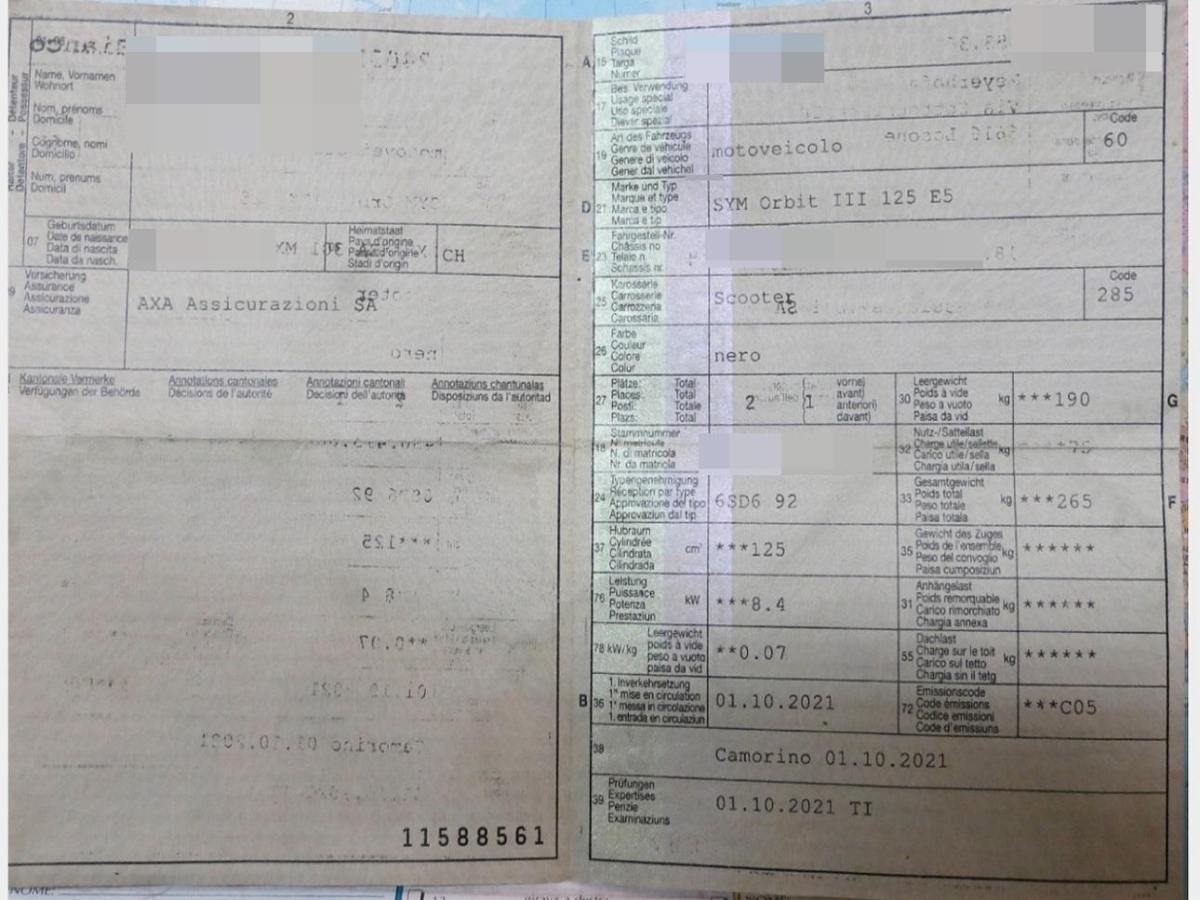 2
Name, Vornamen
Wohnort
Nom, prénoms
Domicile
Cognome, nomi
Domicilio
Num, prenums
Domicil
07
Geburtsdatum
Date de naissance
Data di nascita
Data da nasch.
Heimatstaat
Pays d'origine
Paese d'origine
Stadi d'origin
CH
Versicherung
Assurance
Assicurazione
Assicuranza
AXA Assicurazioni SA
Kantonale Vermerke
Verfügungen der Behörde
Annotations cantonales
Décisions de l'autorité
Annotazioni cantonali
Decisioni dell'autorità
Annotaziuns chantunalas
Disposiziuns da l'autoritad
11588561
3
A
15
Schild
Plaque
Targa
Numer
17
Bes. Verwendung
Usage spécial
Uso speciale
Diever spezial
19
Art des Fahrzeugs
Genre de véhicule
Genere di veicolo
Gener dal vehichel
motoveicolo
Code
60
D
21
Marke und Typ
Marque et type
Marca e tipo
Marca e tip
SYM Orbit III 125 E5
E
23
Fahrgestell-Nr.
Châssis no
Telaio n.
Schassis nr.
25
Karosserie
Carrosserie
Carrozzeria
Carossaria
Scooter
Code
285
26
Farbe
Couleur
Colore
Colur
nero
27
Plätze: Total
Places: Total
Posti: Totale
Plazs: Total
2
1
vorne)
avant)
anteriori)
davant)
30
Leergewicht
Poids à vide
Peso a vuoto
Paisa da vid
kg
***190
G
18
Stammnummer
N. matricule
N. di matricola
Nr. da matricla
32
Nutz-/Sattellast
Charge utile/sellette
Carico utile/sella
Chargia utila/sella
kg
75
24
Typengenehmigung
Réception par type
Approvazione del tipo
Approvaziun dal tip
6SD6 92
33
Gesamtgewicht
Poids total
Peso totale
Paisa totala
kg
***265
F
37
Hubraum
Cylindrée
Cilindrata
Cilindrada
cm³
***125
35
Gewicht des Zuges
Poids de l'ensemble
Peso del convoglio
Paisa cumposiziun
kg
******
76
Leistung
Puissance
Potenza
Prestaziun
kW
***8.4
31
Anhängelast
Poids remorquable
Carico rimorchiato
Chargia annexa
kg
******
78 kW/kg
Leergewicht
poids à vide
peso a vuoto
paisa da vid
**0.07
55
Dachlast
Charge sur le toit
Carico sul tetto
Chargia sin il tetg
kg
******
B
36
1. Inverkehrsetzung
1re mise en circulation
1a messa in circolazione
1. entrada en circulaziun
01.10.2021
72
Emissionscode
Code émissions
Codice emissioni
Code d'emissiuns
***C05
38
Camorino 01.10.2021
39
Prüfungen
Expertises
Perizie
Examinaziuns
01.10.2021 TI